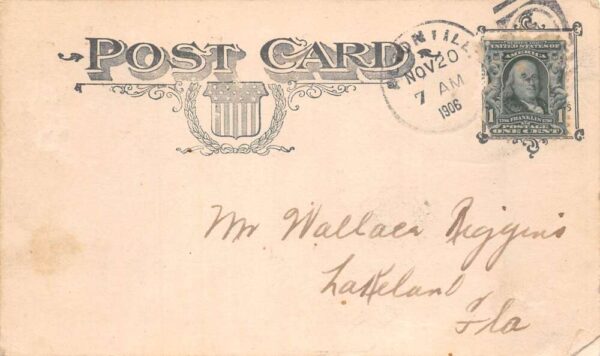 POST CARD
NOV 20
7 AM
1906
UNITED STATES OF
AMERICA
FRANKLIN
1 POSTAGE 1
ONE CENT
Mr Wallace Riggins
Lakeland
Fla